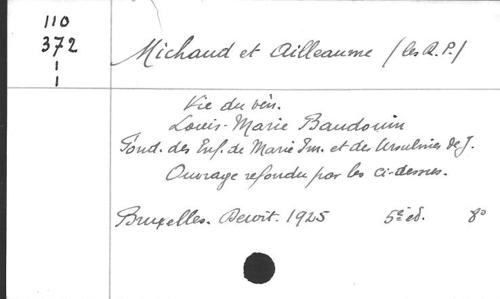 110
372
1
1
Michaud et Ailleaume (les R.P.)
Vie du vén.
Louis-Marie Baudouin
Fond. des Enf. de Marie Im. et des Ursulines de J.
Ouvrage refondu par les ci-dessus.
Bruxelles. Dewit. 1925 5e éd. 8°